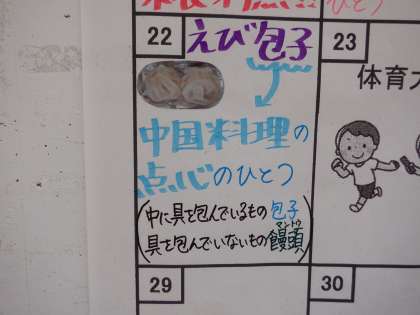 ひとつ
22
えび包子
23
体育大
中国料理の
点心のひとつ
(中に具を包んでいるもの 包子
具を包んでいないもの 饅頭)
マントウ
29
30